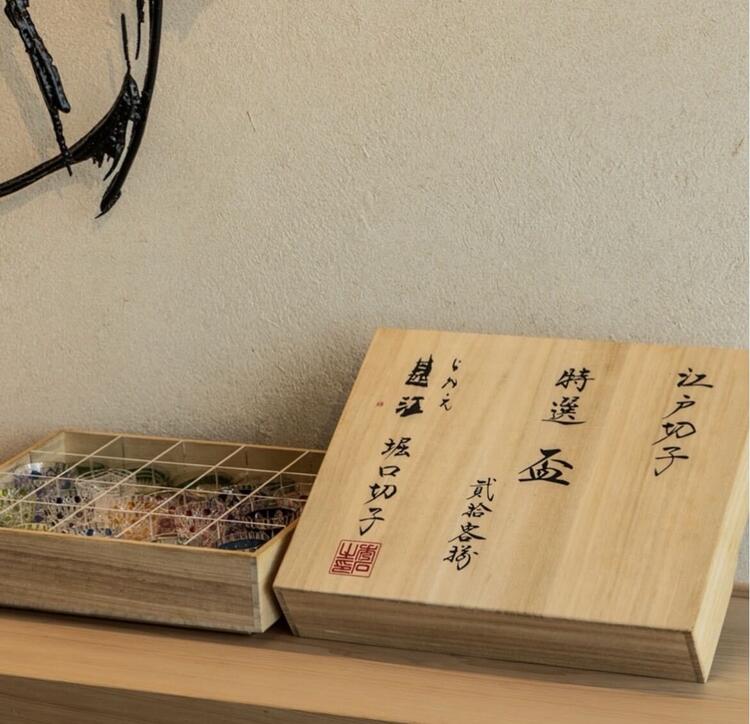 江戸切子
特選 盃
貳拾客揃
じんえ
甚江
堀口切子